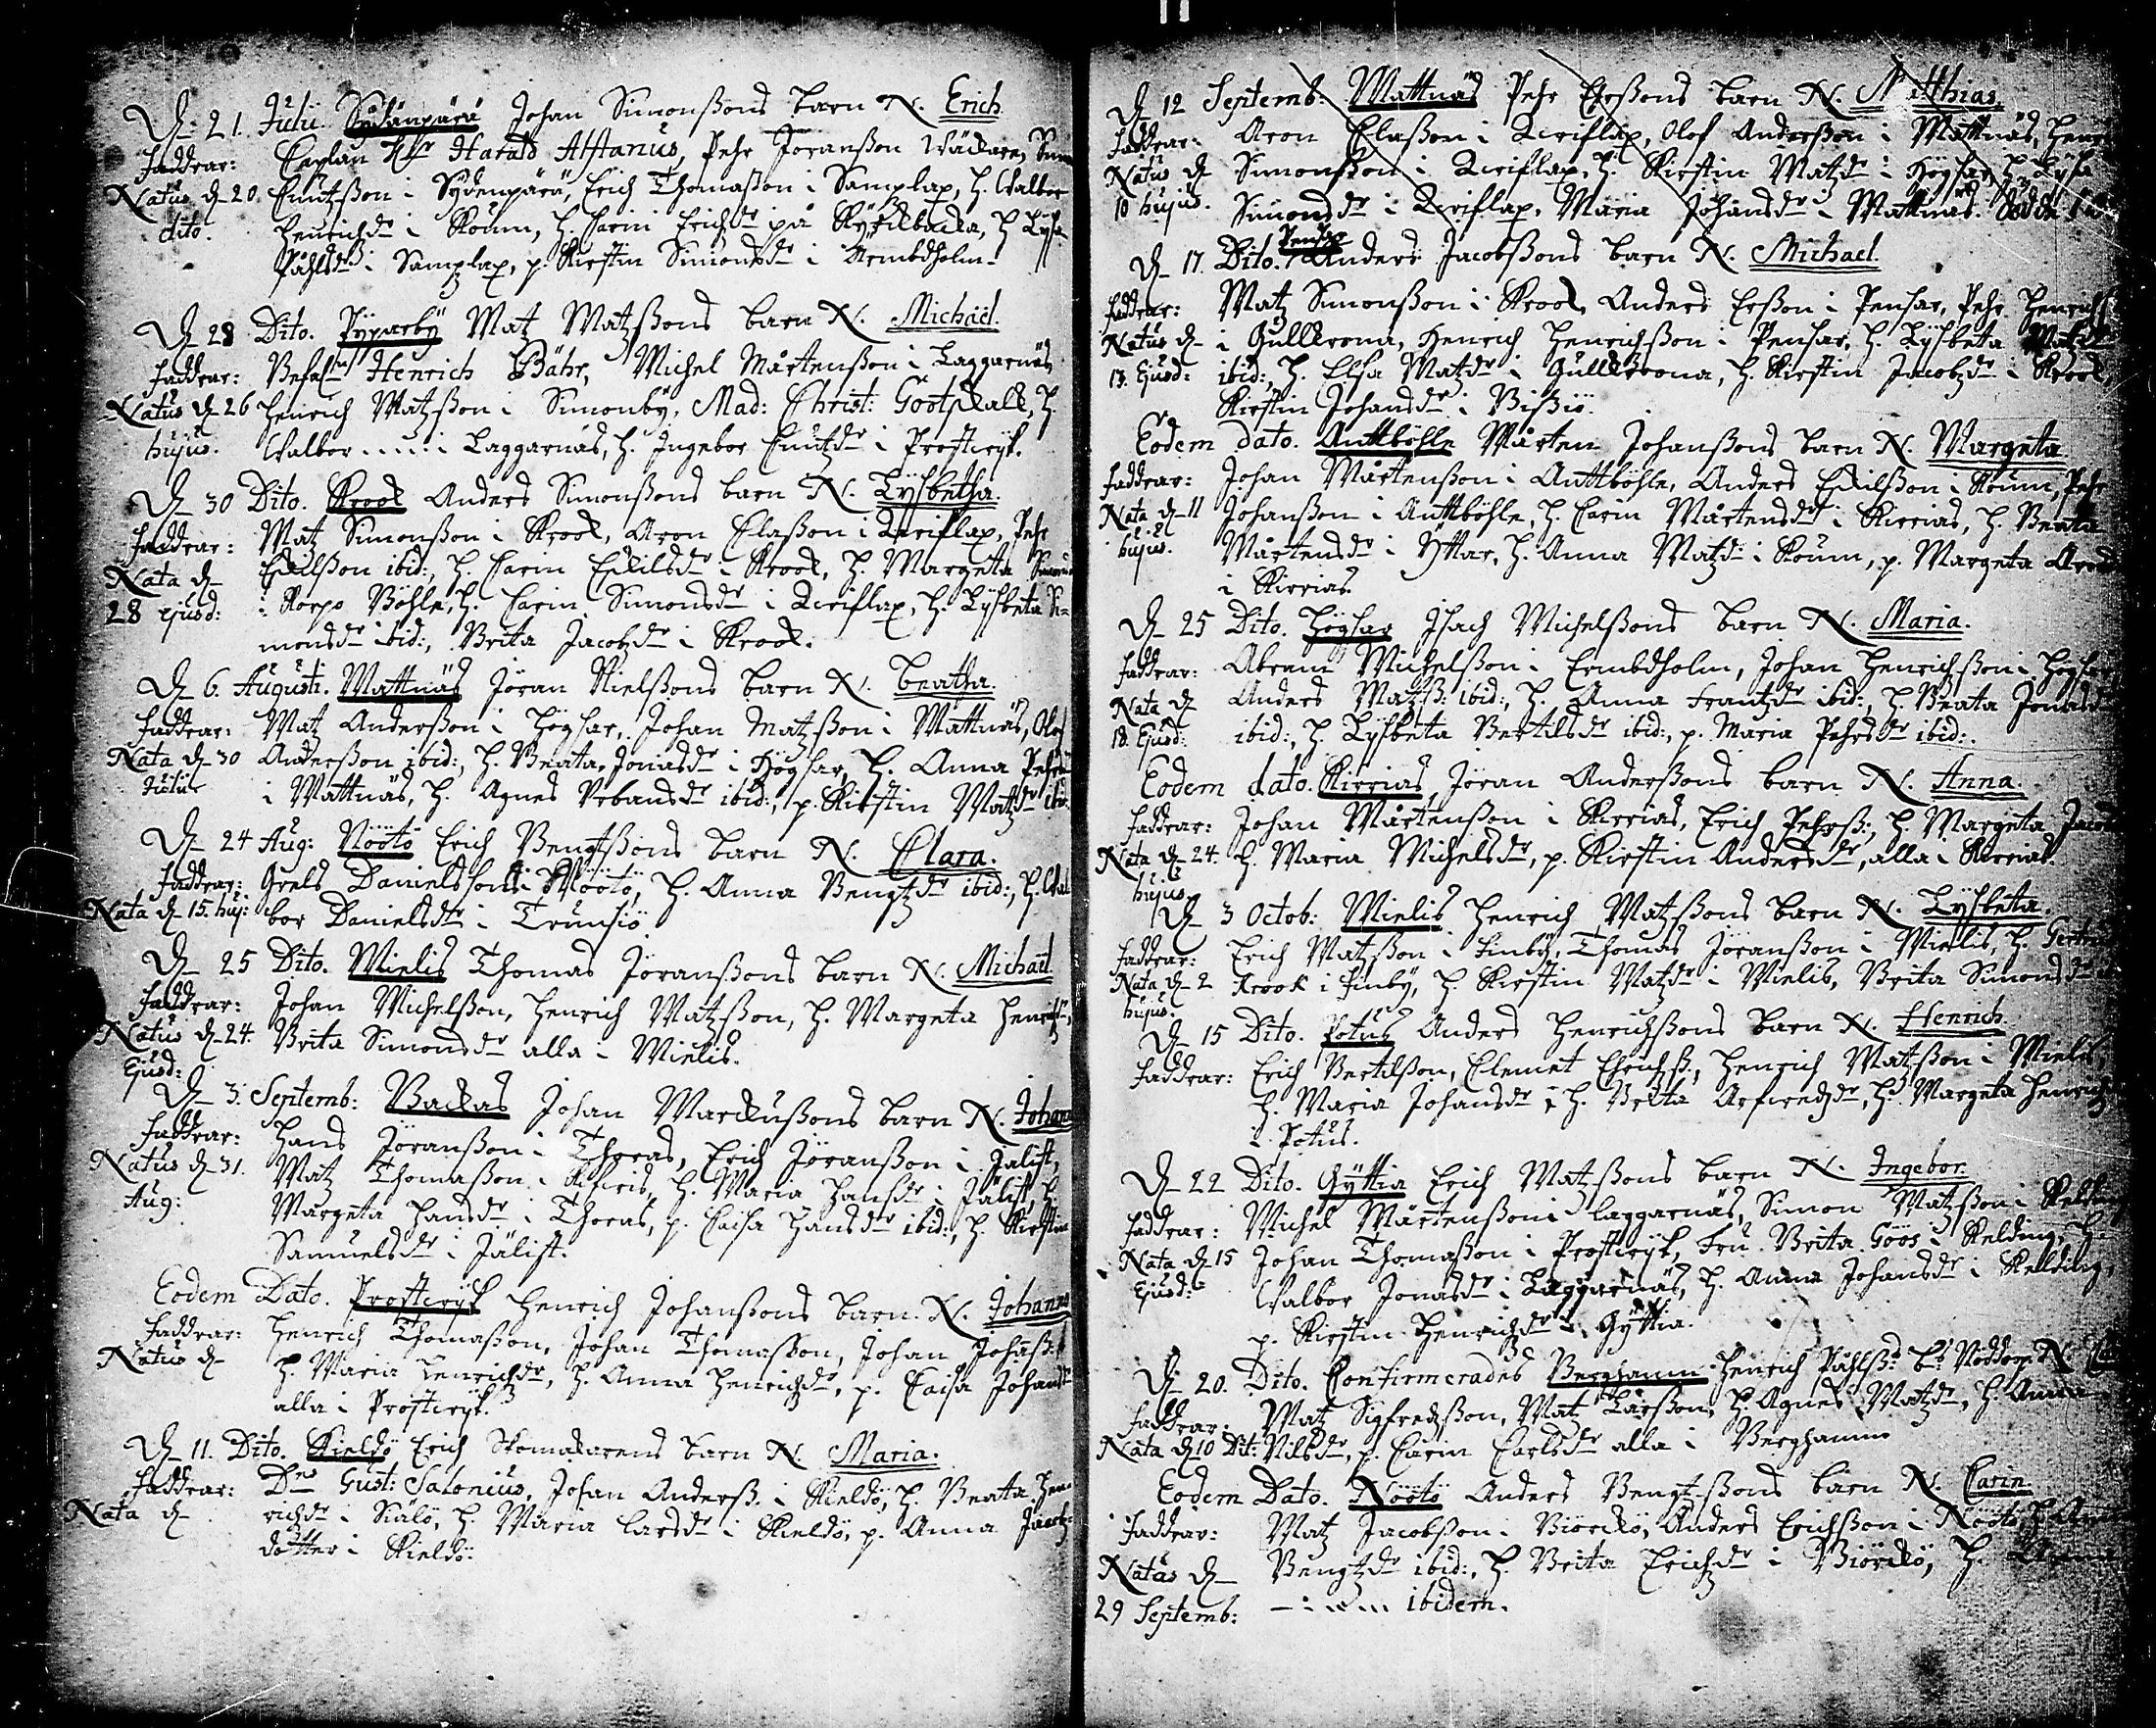 D. 21. Julii. Sydänperä Johan Simonßons barn N. Erich
Faddrar: Caplan Hr Harald Alftanus, Pehr Jöranßon Wäckare,
Natus d. 20. Cnutzßon i Sydenpärä, Erich Thomaßon i Samslax, h. Walbor
dito. Henrichdr i Koum, h. Carin Erichdr på Kyrilbacka, h. Lysa
Påhlsdr i Samslax, p. Kirstin Simonsdr i Ernbdholm.
D. 28 Dito. Pyparby Matz Matzßons barn N. Michäel.
Faddrar: Befal. Henrich Bähr, Michel Mårtenßon i Laggarnäs,
Natus d. 26 Henrich Matzßon i Simonby, Mad: Christ: Gootskalk, h.
hujus. Walbor ..... i Laggarnäs, h. Ingebor Cnutzdr i Prostvijk.
D. 30 Dito. Krook Anders Simonßons barn N. Lysbetha.
Faddrar: Matz Simonßon i Krook, Aron Claßon i Qviflax, Pehr
Nata d. Eskilßon ibid:, h. Carin Eskilsdr i Krook, h. Margeta
28 ejusd: i Korpo Böhle, h. Carin Simonsdr i Qviflax, h. Lysbeta Si-
monsdr ibid:, Brita Jacobzdr i Krook.
D. 6. Augusti. Mattnäs Jöran Nielßons barn N. Beatha.
Faddrar: Matz Anderßon i Högsar, Johan Matzßon i Mattnäs, Olof
Nata d. 30 Anderßon ibid:, h. Beata Jonasdr i Högsar, h. Anna
Julii i Mattnäs, h. Agnes Urbansdr ibid:, p. Kirstin Matzdr ibid.
D. 24 Aug: Nöötö Erich Bengtßons barn N. Clara.
Faddrar: Grels Danielssons i Nöötö, h. Anna Bengtzdr ibid:, h. Wal
Nata d. 15. huj: bor Danielsdr i Trunsiö.
D. 25 Dito. Mielis Thomas Jöranßons barn N. Michäel
Faddrar: Johan Michelßon, Henrich Matzßon, h. Margeta
Natus d. 24. Brita Simonsdr alla i Mielis.
Ejusd:
D. 3. Septemb: Backas Johan Marckusßons barn N. Johann
Faddrar: Hans Jöranßon i Thoras, Erich Jöranßon i Jälist,
Natus d. 31. Matz Thomaßon i, h. Maria Hansdr i Jälist, h.
Aug: Margeta Hansdr i Thoras, p. Caisa Hansdr ibid:, h. Kirstin
Samuelsdr i Jälist.
Eodem Dato. Prostvijk Henrich Johanßons barn. N. Johann
Faddrar: Henrich Thomaßon, Johan Thomasson, Johan Johanß:
Natus d. h. Maria Henrichdr, h. Anna Henrichdr, p. Caisa Johansdr
alla i Prostvijk.
D. 11. Dito. Kieldö Erich Skomakarens barn N. Maria.
Faddrar: Dns Gust: Salonius, Johan Anderß. i Kieldö, h. Beata Hen
Nata d. richdr i Siälö, h. Maria Larsdr i Kieldö, p. Anna Jacobz
dotter i Kieldö.
D. 12 Septemb: Mattnäs Pehr Ersßons barn N. Matthias.
Faddrar: Aron Claßon i Qviflax, Olof Anderßon i Mattnäs,
Natus d. Simonßon i Qviflax, h. Kirstin Matzdr i Högsar, h. Lysa
10 hujus. Simonsdr i Qviflax, Maria Johansdr i Mattnäs. Död
D. 17. Dito. Pensar Anders Jacobßons barn N. Michael.
Faddrar: Matz Simonßon i Krook, Anders Ersßon i Pensar, Pehr Henrichß
Natus d. i Gullkrona, Henrich Henrichßon i Pensar, h. Lysbeta Matzdr
13. Ejusd: ibid:, h. Elsa Matzdr i Gullkrona, h. Kirstin Jacobzdr i Krook,
Kirstin Johansdr i Bißiö.
Eodem dato. Anttböhle Mårten Johanßons barn N. Margeta
Faddrar: Johan Mårtenßon i Anttböhle, Anders Eskilßon i Koum, Pehr
Nata d. 11 Johanßon i Anttböhle, h. Carin Mårtensdr i Kirrias, h. Beata
hujus. Mårtensdr i Yttar, h. Anna Matzdr i Koum, p. Margeta
i Kirrias.
D. 25 Dito. Högsar Isach Michelßons barn N. Maria.
Faddrar: Abram Michelßon i Ernbdholm, Johan Henrichßon i Högsar,
Nata d. Anders Matzß: ibid:, h. Anna Frantzdr ibid:, h. Beata Jonasdr
18. Ejusd: ibid:, h. Lysbeta Bertilsdr ibid:, p. Maria Pehrsdr ibid:.
Eodem dato. Kirrias, Jöran Anderßons barn N. Anna.
Faddrar: Johan Mårtenßon i Kirrias, Erich Pehrß:, h. Margeta
Nata d. 24. h. Maria Michelsdr, p. Kirstin Andersdr, alla i Kirrias.
hujus
D. 3 Octob: Mielis Henrich Matzßons barn N. Lysbeta.
Faddrar: Erich Matzßon i Finby, Thomas Jöranßon i Mielis, h.
Nata d. 2 Krook i Finby, h Kirstin Matzdr i Mielis, Brita Simonsdr
hujus.
D. 15 Dito. Potus Anders Henrichßons barn N. Henrich.
Faddrar: Erich Bertilßon, Clemet Ehrichß., Henrich Matzßon i Mielis,
h. Maria Johansdr, h. Brita Arfvedzdr, h. Margeta
i Potus.
D. 22 Dito. Gyttia Erich Matzßons barn N. Ingebor.
Faddrar: Michel Mårtenßon i Laggarnäs, Simon Matzßon i Kelding
Nata d. 15 Johan Thomaßon i Prostvijk, Fru Brita Göös i Kelding, h.
Ejusd: Walbor Jonasdr i Laggarnäs, h. Anna Johansdr i Kelding,
p. Kirstin Henrichdr i Gyttia.
D. 20. Dito. Confirmerades Berghamn Henrich Påhlß: b: Nöddop N.
Faddrar: Matz Sigfredßon, Matz Larßon, h. Agnes Matzdr, h. Anna
Nata d. 10 Dit: Nilsdr, p. Carin Carlsdr alla i Berghamn
Eodem Dato. Nöötö Anders Bengtßons barn N. Carin.
Faddrar: Matz Jacobßon i Biörckö, Anders Erichßon i Nöötö, h.
Natas d. Bengtzdr ibid:, h. Brita Erichdr i Biörckö, h.
29 Septemb: ibidem.